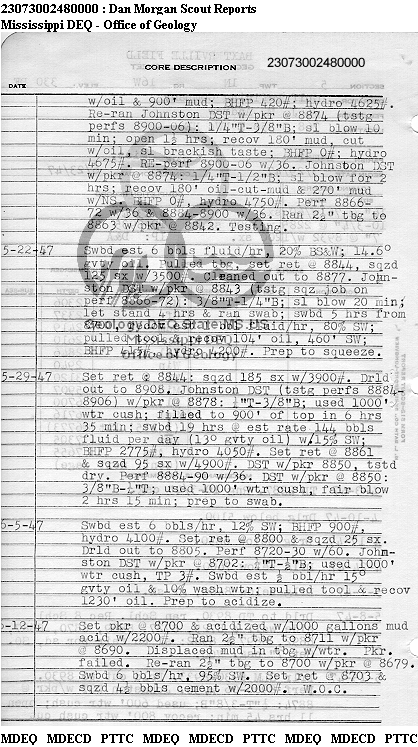 23073002480000 : Dan Morgan Scout Reports
Mississippi DEQ - Office of Geology
CORE DESCRIPTION
23073002480000
DATE
w/oil & 900' mud; BHFP 420#; hydro 4625#.
Re-ran Johnston DST w/pkr @ 8874 (tstg
perfs 8900-06): 1/4"T-3/8"B; sl blow 10
min; open 1½ hrs; recov 180' mud, cut
w/oil, sl brackish taste; BHFP 0#; hydro
4675#. RE-perf 8900-06 w/36. Johnston DST
w/pkr @ 8874: 1/4"T-1/2"B; sl blow for 2
hrs; recov 180' oil-cut-mud & 270' mud
w/NS. BHFP 0#, hydro 4750#. Perf 8866-
72 w/36 & 8864-8900 w/36. Ran 2½" tbg to
8863 w/pkr @ 8842. Testing.
5-22-47 Swbd est 6 bbls fluid/hr, 20% BS&W; 14.6°
gvty oil. Pulled tbg, set ret @ 8844, sqzd
125 sx w/3500#. Cleaned out to 8877. John-
ston DST w/pkr @ 8843 (tstg sqz job on
perf 8866-72): 3/8"T-1/4"B; sl blow 20 min;
let stand 4 hrs & ran swab; swbd 5 hrs from
fluid/hr, 80% SW;
pulled tool & recov 104' oil, 460' SW;
BHFP hydro 4200#. Prep to squeeze.
5-29-47 Set ret @ 8844: sqzd 185 sx w/3900#. Drld
out to 8908. Johnston DST (tstg perfs 8884-
8906) w/pkr @ 8878: 1"T-3/8"B; used 1000'
wtr cush; filled to 900' of top in 6 hrs
35 min; swbd 19 hrs @ est rate 144 bbls
fluid per day (13° gvty oil) w/15% SW;
BHFP 2775#, hydro 4050#. Set ret @ 8861
& sqzd 95 sx w/4900#. DST w/pkr 8850, tstd
dry. Perf 8884-90 w/36. DST w/pkr @ 8850:
3/8"B-½"T; used 1000' wtr cush, fair blow
2 hrs 15 min; prep to swab.
-5-47 Swbd est 6 bbls/hr, 12% SW; BHFP 900#,
hydro 4100#. Set ret @ 8800 & sqzd 25 sx.
Drld out to 8805. Perf 8720-30 w/60. John-
ston DST w/pkr @ 8702: ½"T-½"B; used 1000'
wtr cush, TP 3#. Swbd est ½ bbl/hr 15°
gvty oil & 10% wash wtr; pulled tool & recov
1230' oil. Prep to acidize.
-12-47 Set pkr @ 8700 & acidized w/1000 gallons mud
acid w/2200#. Ran 2½" tbg to 8711 w/pkr
@ 8690. Displaced mud in tbg w/wtr. Pkr.
failed. Re-ran 2½" tbg to 8700 w/pkr @ 8679.
Swbd 6 bbls/hr, 95% SW. Set ret @ 8703 &
sqzd 4½ bbls cement w/2000#. W.O.C.
MDEQ MDECD PTTC MDEQ MDECD PTTC MDEQ MDECD PTTC